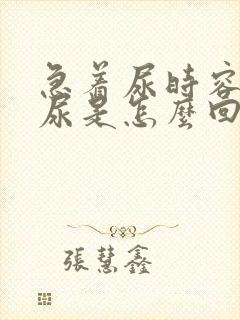 急着尿時容
尿是怎麼回
張慧鑫